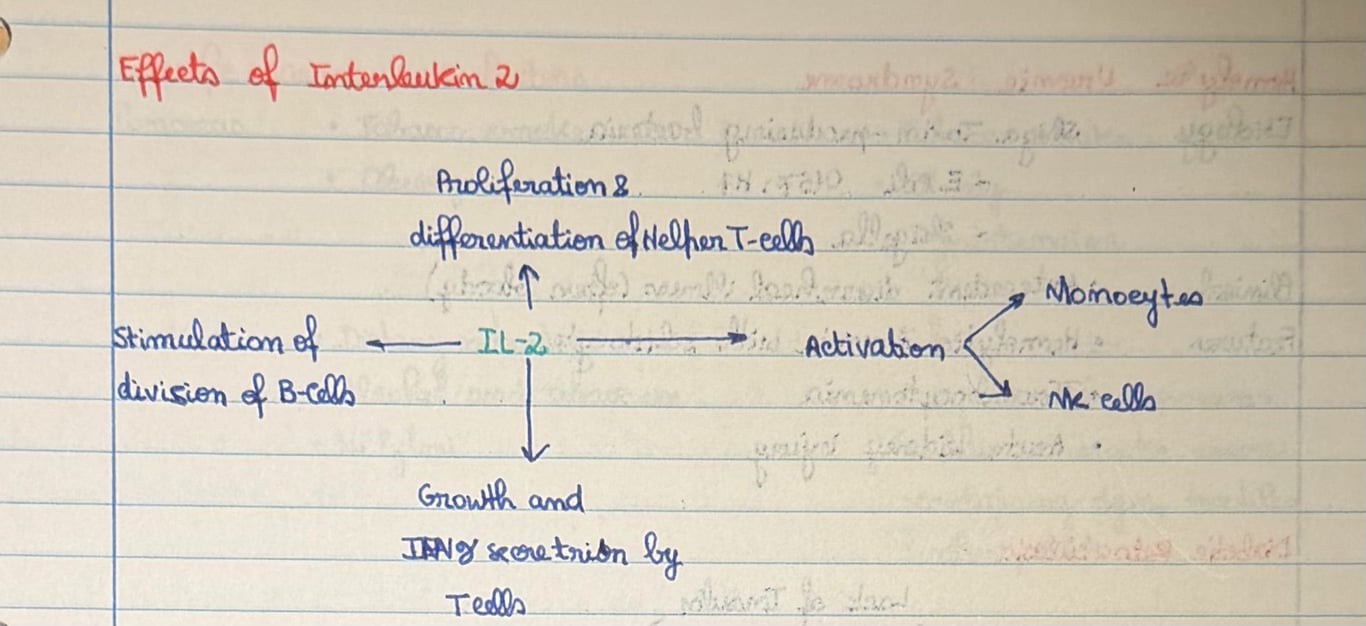 Effects of Interleukin 2
Proliferation &
differentiation of Helper T-cells
Stimulation of
division of B-cells
IL-2
Activation
Moinocytes
NK cells
Growth and
IFNγ secretrion by
T cells